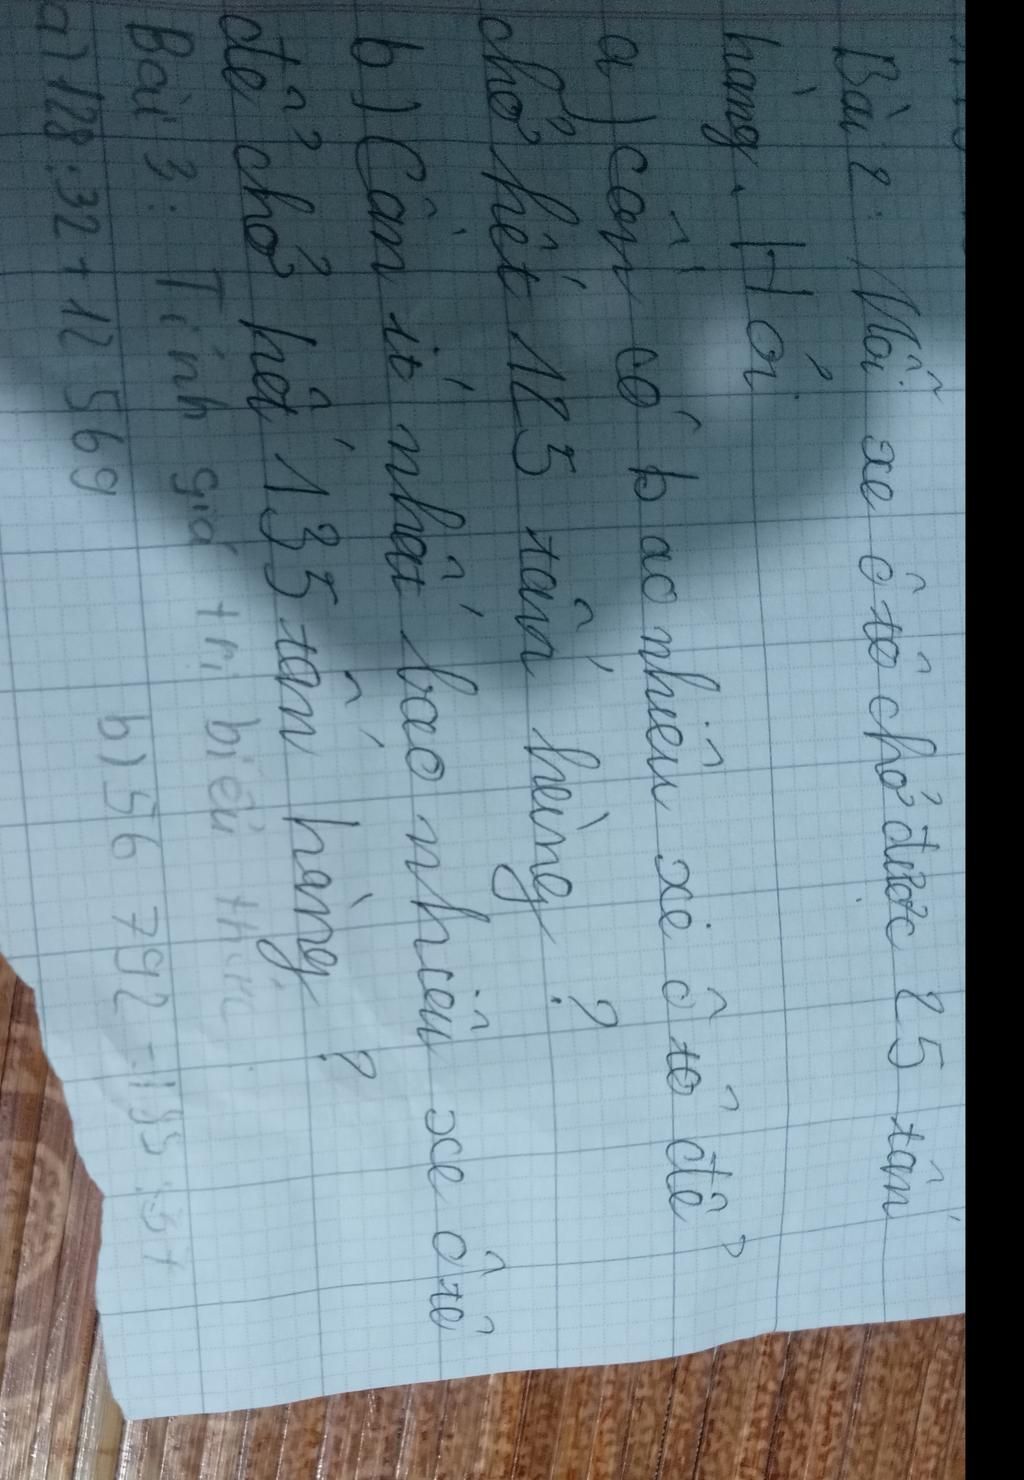 Bài 2: Mỗi xe ô tô chở được 25 tấn
hàng. Hỏi
a) cần có bao nhiêu xe ô tô để
chở hết 125 tấn hàng?
b) Cần ít nhất bao nhiêu xe ô tô
để chở hết 135 tấn hàng?
Bài 3: Tính giá trị biểu thức
a) 128:32 + 12 569 b) 56 792 -